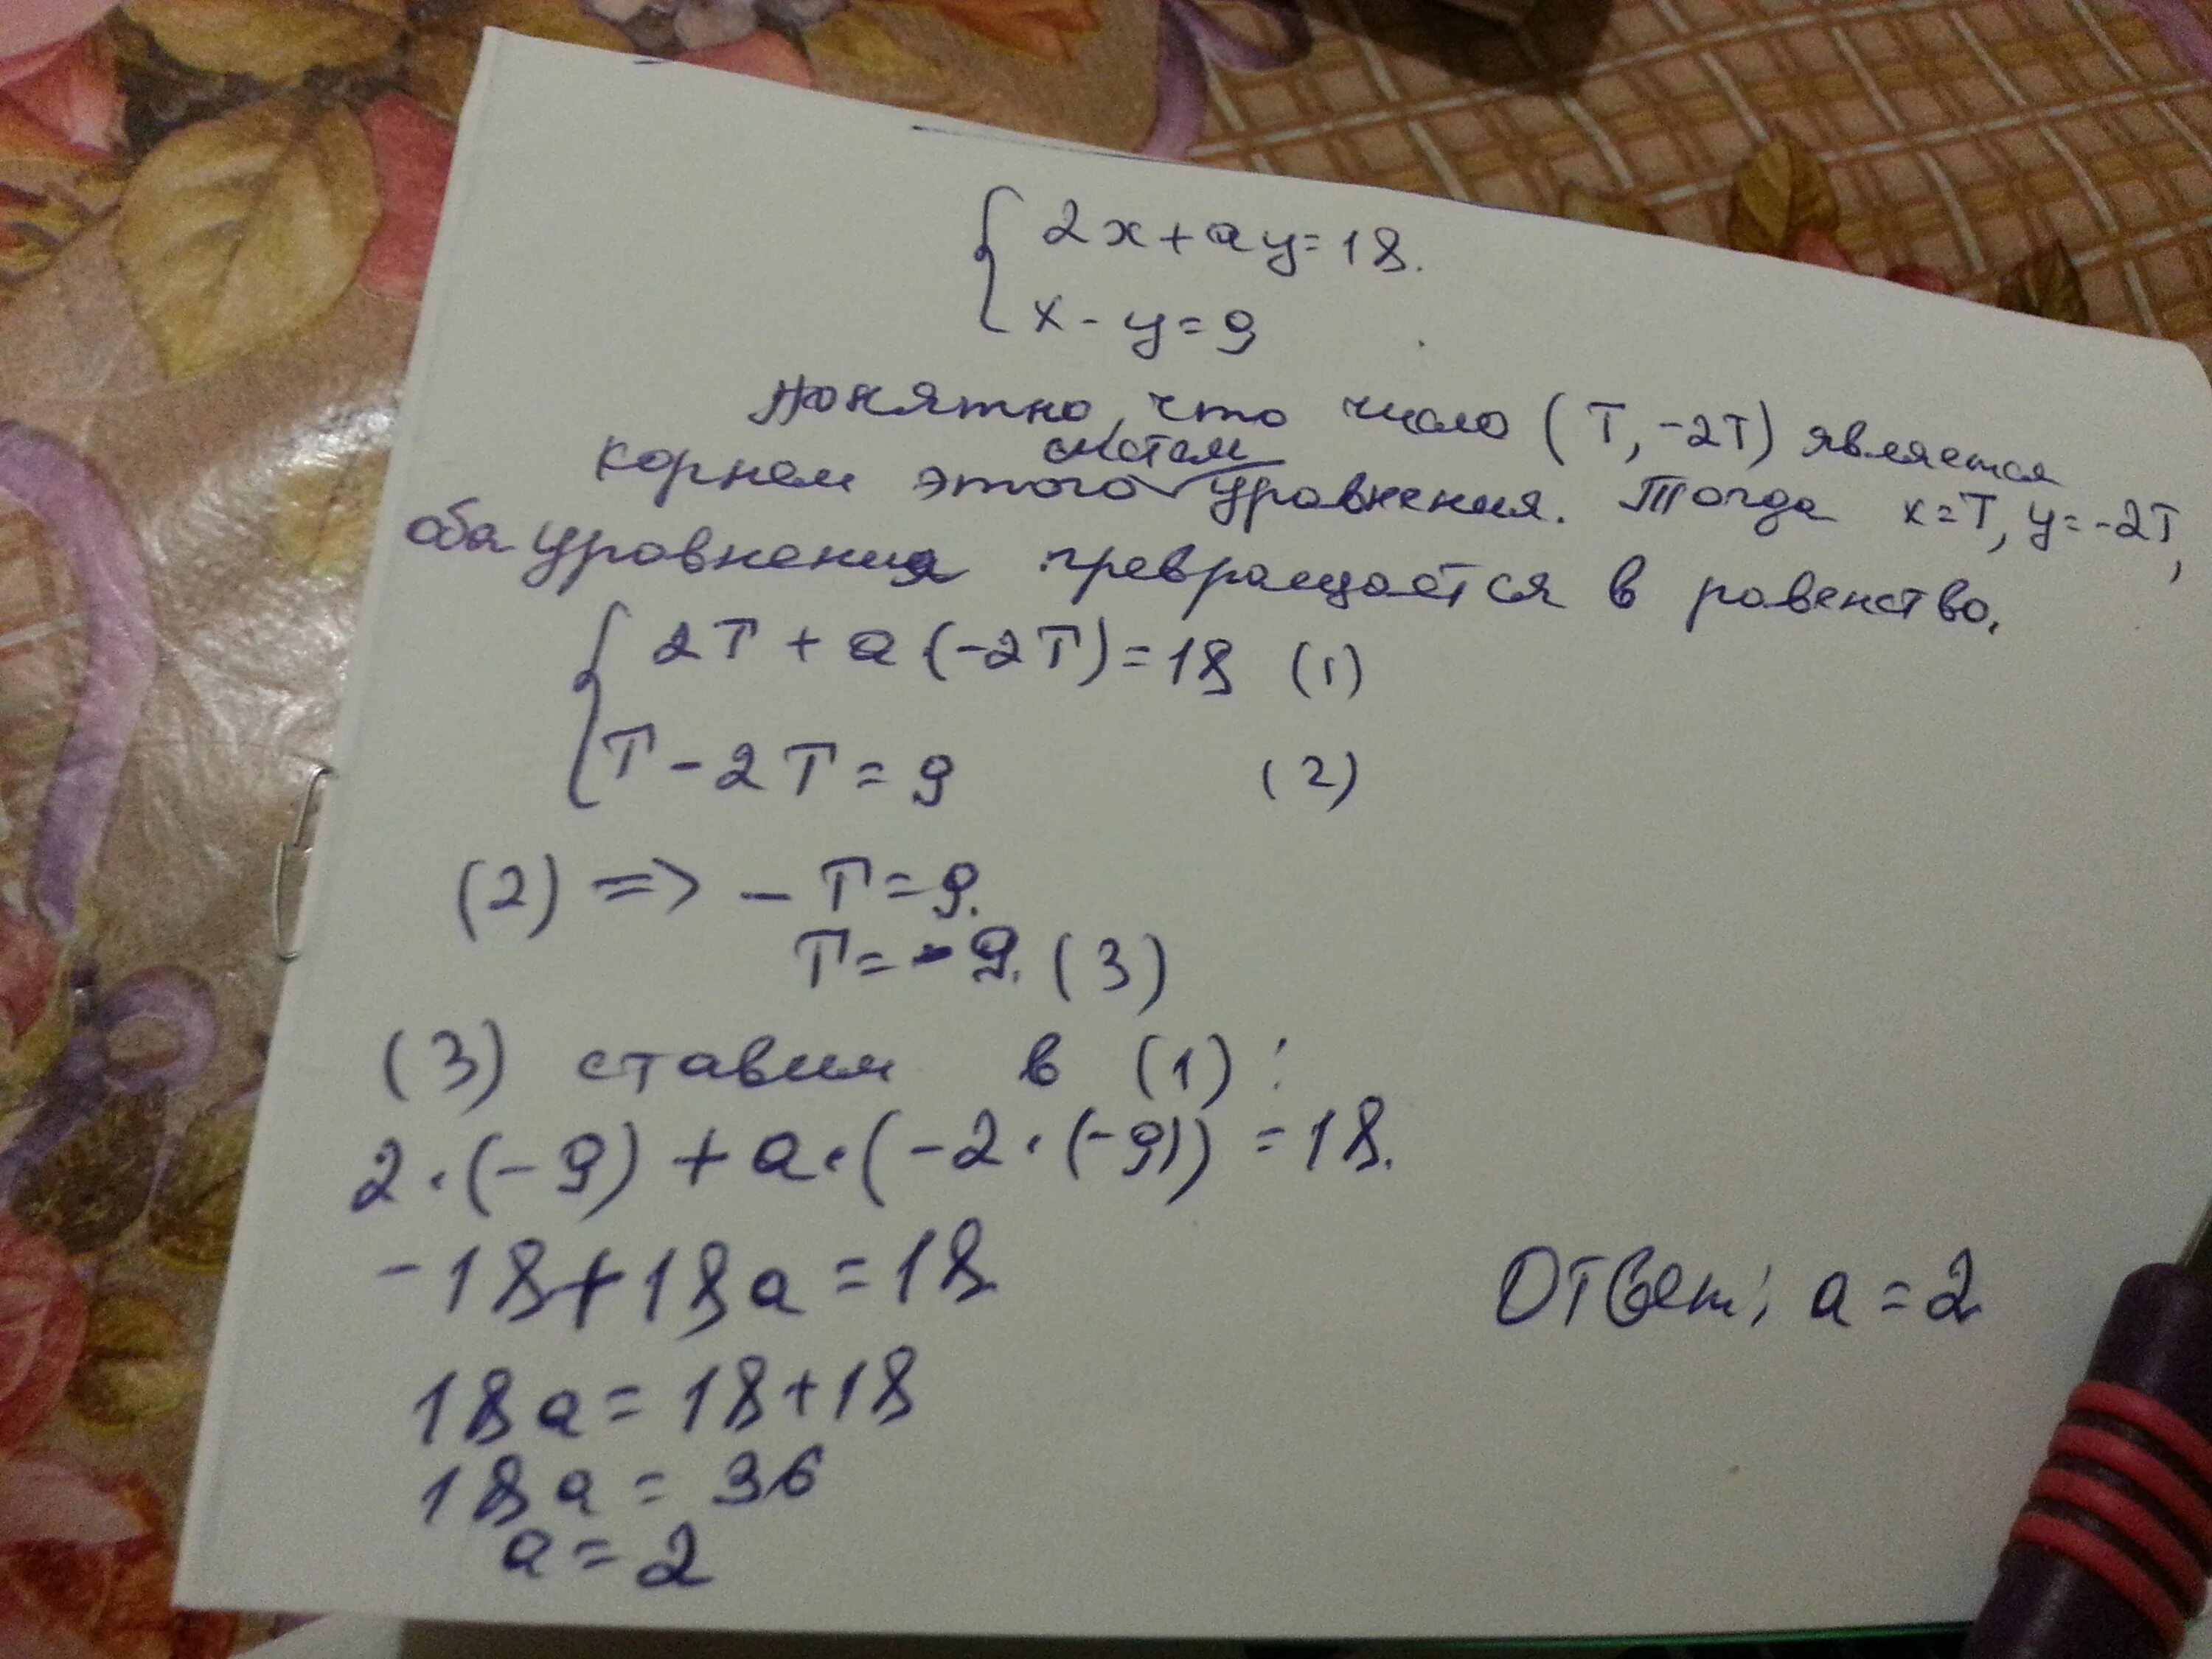 2x+ay=18.
x-y=9
понятно, что число (T, -2T) является
систем
корнем этого уровнения. Тогда x=T, y=-2T,
оба уровнения превращается в ровенство.
2T + a·(-2T)=18 (1)
T-2T=9 (2)
(2) => -T=9.
T=-9. (3)
(3) ставим в (1):
2·(-9)+a·(-2·(-9))=18.
-18+18a=18
Ответ: a=2
18a=18+18
18a=36
a=2